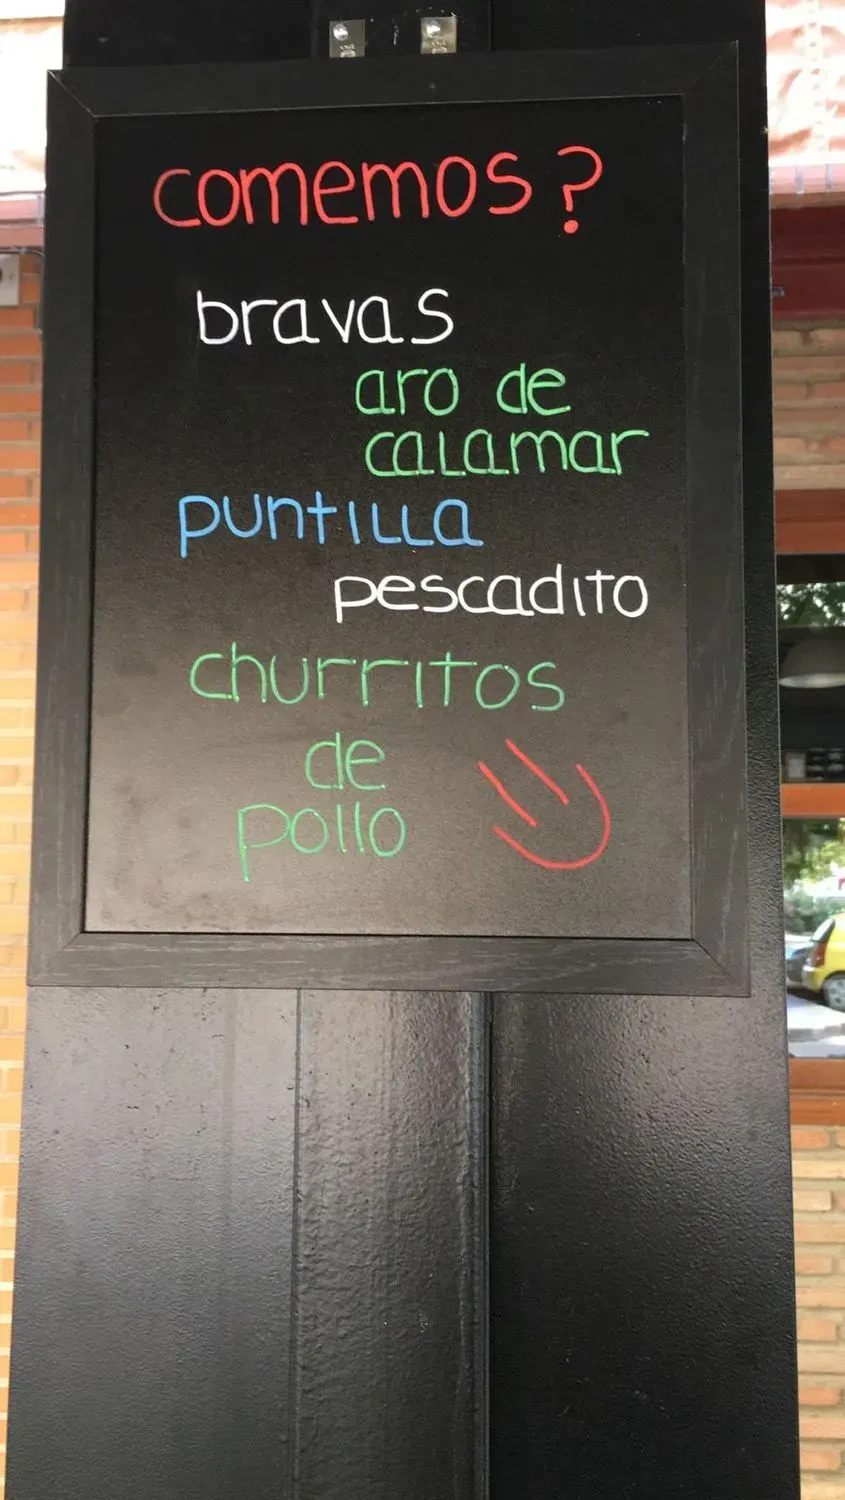 comemos?
bravas
aro de
calamar
puntilla
pescadito
churritos
de
pollo